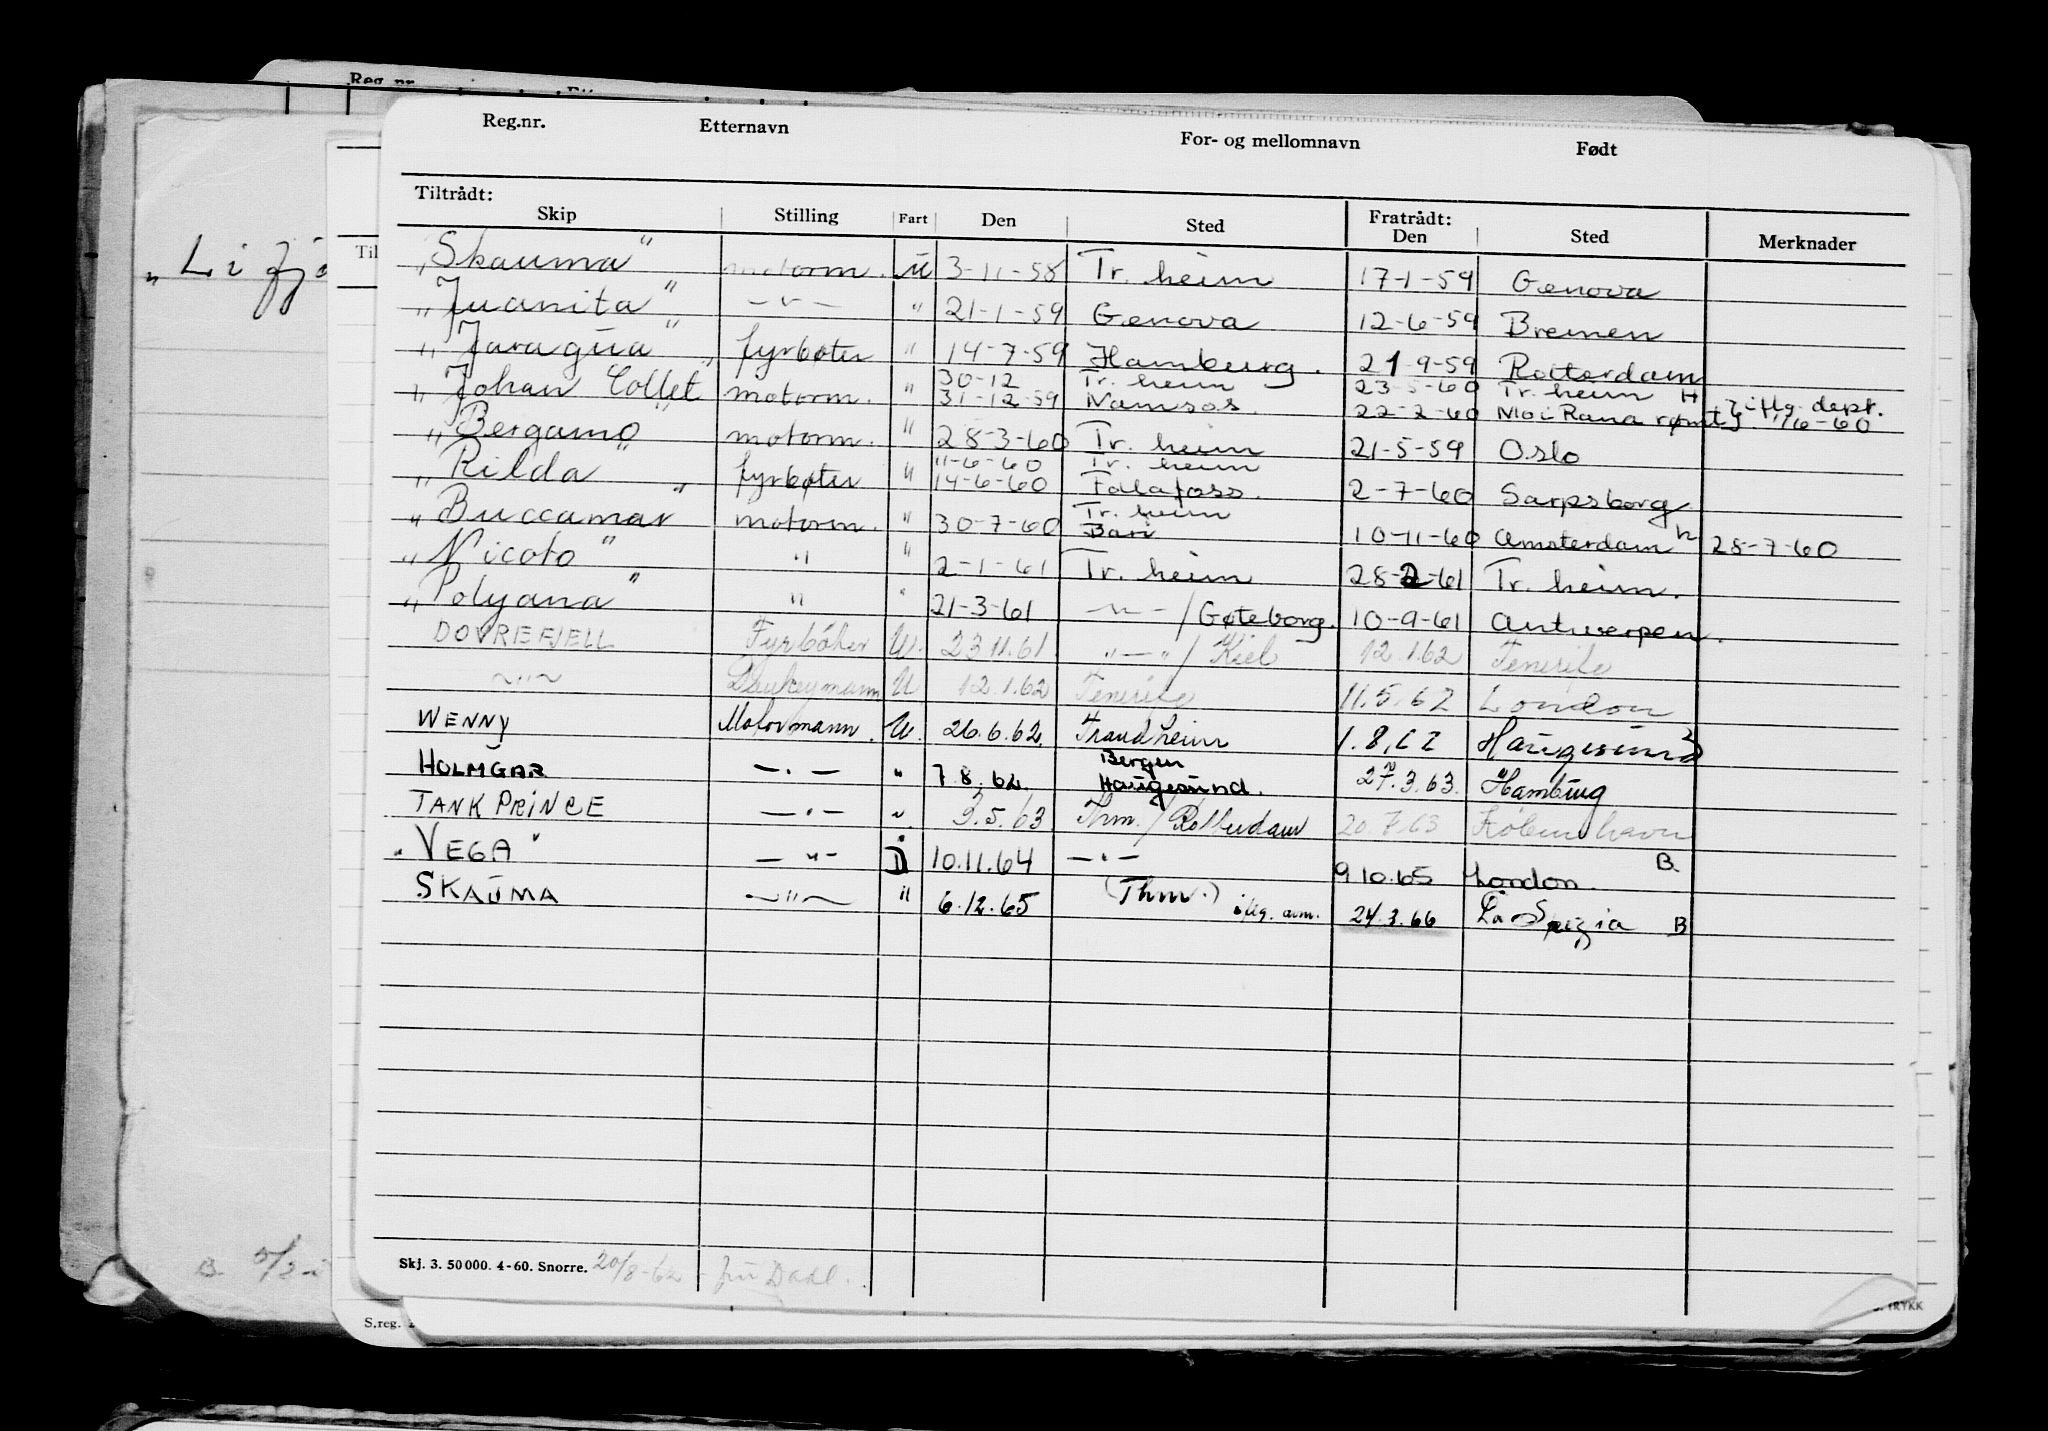 Reg. nr.
Reg.nr. Etternavn For- og mellomnavn Født
Tiltrådt: Fratrådt:
Skip Stilling Fart Den Sted Den Sted Merknader
„Skauma" motorm. U 3-11-58 Tr. heim 17-1-59 Genova
„Juanita" —"— " 21-1-59 Genova 12-6-59 Bremen
„Jaragua" fyrbøter " 14-7-59 Hamburg. 21-9-59 Rotterdam
30-12 Tr. heim 23-5-60 Tr. heim H
„Johan Collet" motorm. " 31-12-59 Namsos. 22-2-60 Mo i Rana rømt } iflg. dept. 1/6-60
„Bergamo" motorm. " 28-3-60 Tr. heim 21-5-59 Oslo
11-6-60 Tr. heim
„Rilda" fyrbøter " 14-6-60 Fallafoss. 2-7-60 Sarpsborg
Tr. heim
„Buccamar" motorm. " 30-7-60 Bari 10-11-60 Amsterdam h 28-7-60
„Nicoto" " " 2-1-61 Tr. heim 28-2-61 Tr. heim.
„Polyana" " " 21-3-61 —"— / Gøteborg. 10-9-61 Antwerpen.
DOVREFJELL Fyrbøter U. 23.11.61 "—" / Kiel 12.1.62 Tenerife
—"— Donkeymann U 12.1.62 Tenerife 11.5.62 London
WENNY Motormann. U. 26.6.62. Trondheim 1.8.62 Haugesund
Bergen
HOLMGAR —"— " 7.8.62. Haugesund. 27.3.63. Hamburg
TANK PRINCE —"— " 3.5.63 Thm. / Rotterdam 20.7.63 København
„VEGA" —"— D 10.11.64 —"— 9.10.65 London. B.
SKAUMA —"— " 6.12.65 (Thm.) iflg. am. 24.3.66 La Spezia B
„Lifj
Til
B. 5/3-
Skj. 3. 50 000. 4-60. Snorre. 20/8-62 - Dahl.
S.reg. TRYKK